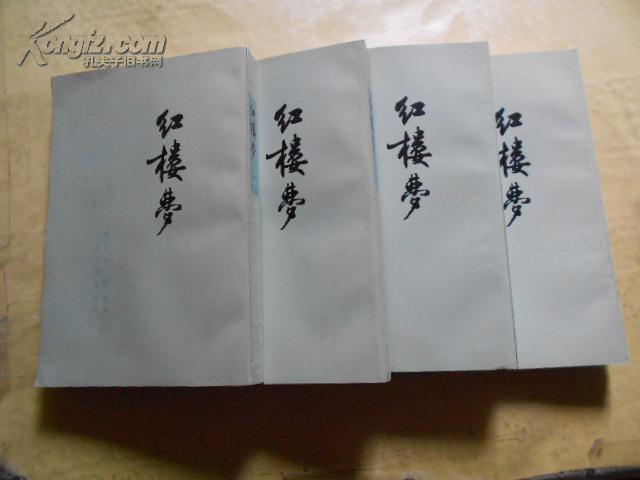 Kongfz.com
孔夫子旧书网
红楼梦
红楼梦
红楼梦
红楼梦
红楼梦